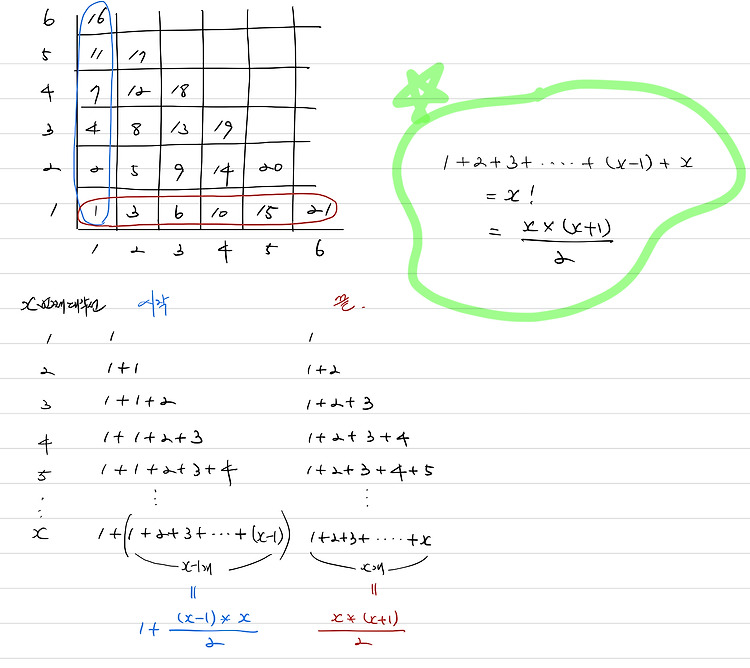 6 16
5 11 17
4 7 12 18
3 4 8 13 19
2 2 5 9 14 20
1 1 3 6 10 15 21
1 2 3 4 5 6
1+2+3+ ····· + (x-1) + x
= x!
= x × (x+1) / 2
x번째 대각선 시작 끝.
1 1 1
2 1+1 1+2
3 1+1+2 1+2+3
4 1+1+2+3 1+2+3+4
5 1+1+2+3+4 1+2+3+4+5
⋮ ⋮ ⋮
x 1+(1+2+3+ ··· + (x-1)) 1+2+3+ ····· +x
x-1개 x개
= =
1+ (x-1) * x / 2 x * (x+1) / 2